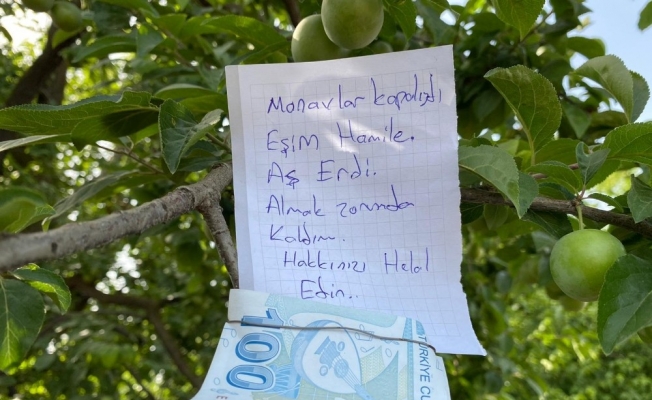 Monavlar kapalıydı
Eşim Hamile.
Aş Erdi.
Almak zorunda
Kaldım.
Hakkınızı Helal
Edin..
100
TÜRKİYE CU